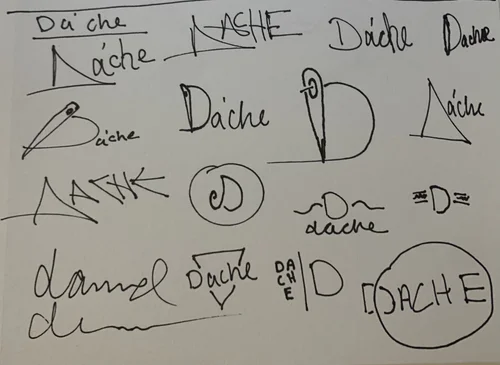 Dáche
NACHE
Dáche
Dache
Náche
Dáche
Dáche
D
Dáche
NACHE
D
D
dache
D
Dache
DA
CH
E
D
DACHE